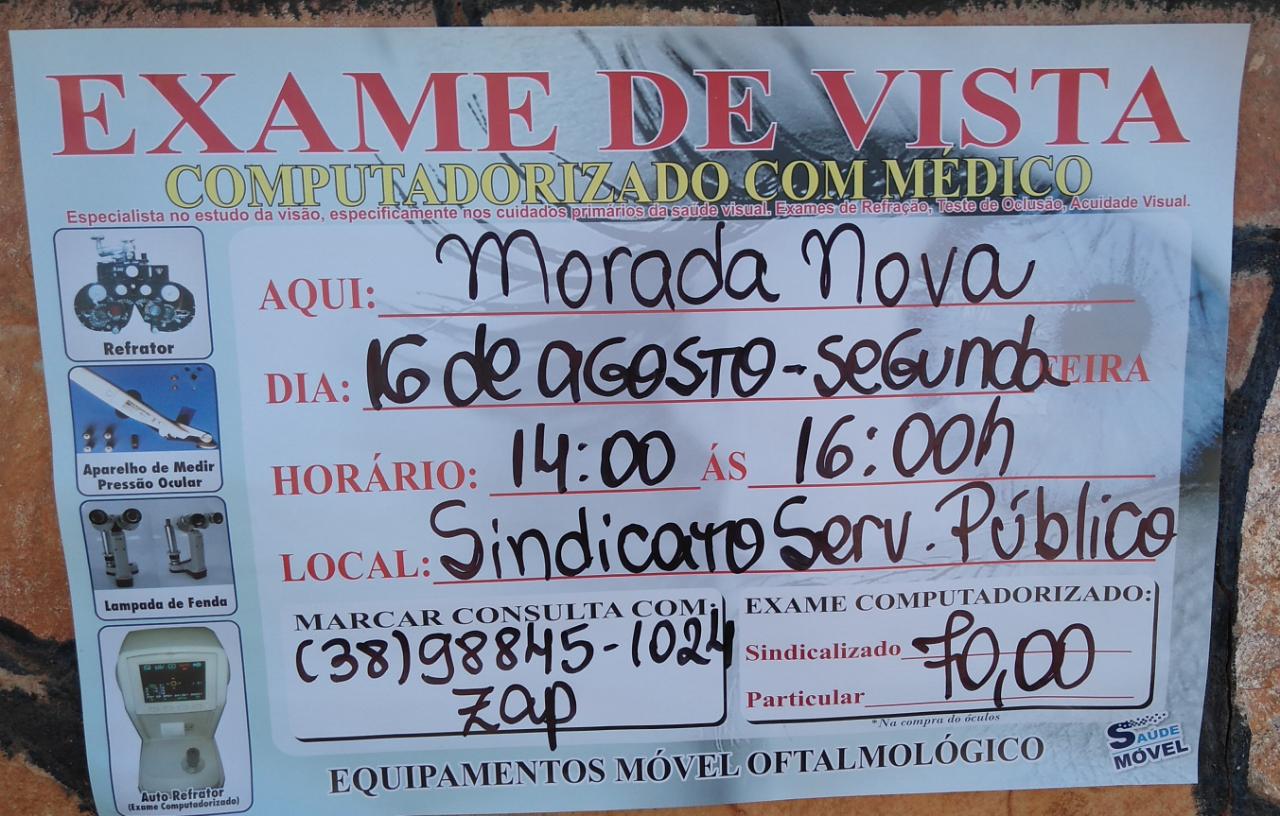 EXAME DE VISTA
COMPUTADORIZADO COM MÉDICO
Especialista no estudo da visão, especificamente nos cuidados primários da saúde visual. Exames de Refração, Teste de Oclusão, Acuidade Visual.
Refrator
Aparelho de Medir
Pressão Ocular
Lampada de Fenda
Auto Refrator
(Exame Computadorizado)
AQUI: Morada Nova
DIA: 16 de AGOSTO - SEGUNDA FEIRA
HORÁRIO: 14:00 ÁS 16:00h
LOCAL: Sindicato Serv. Público
MARCAR CONSULTA COM:
(38)98845-1024
zap
EXAME COMPUTADORIZADO:
Sindicalizado 70,00
Particular
*Na compra do óculos
EQUIPAMENTOS MÓVEL OFTALMOLÓGICO
SAÚDE
MÓVEL